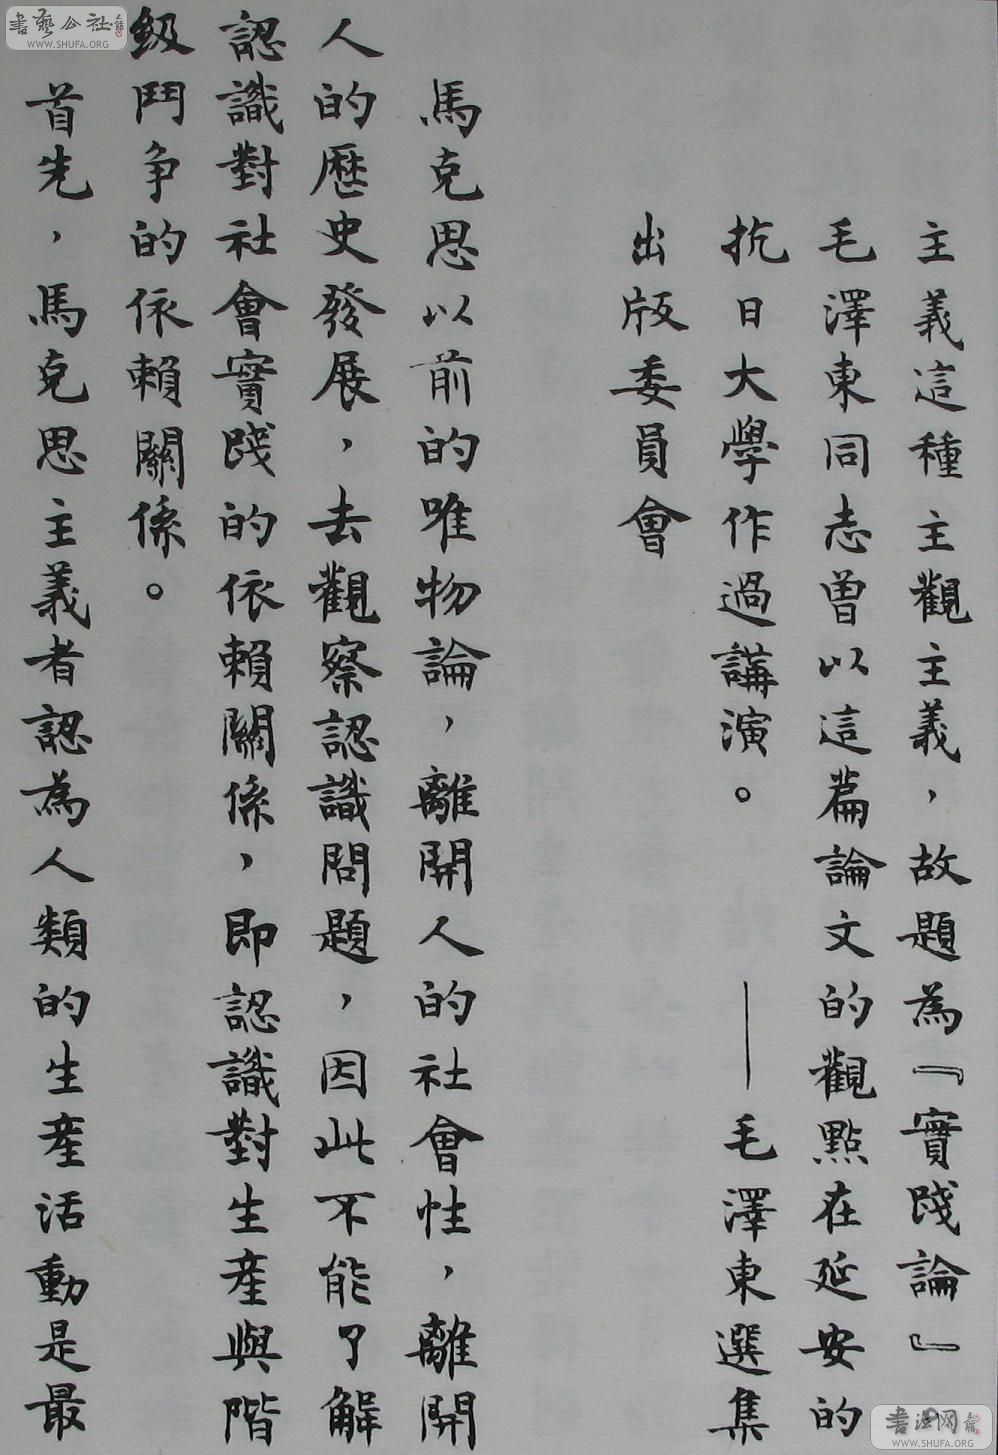 主義這種主觀主義，故題為『實踐論』。
毛澤東同志曾以這篇論文的觀點在延安的
抗日大學作過講演。——毛澤東選集
出版委員會
馬克思以前的唯物論，離開人的社會性，離開
人的歷史發展，去觀察認識問題，因此不能了解
認識對社會實踐的依賴關係，即認識對生產與階
級鬥爭的依賴關係。
首先，馬克思主義者認為人類的生產活動是最
書藝公社
WWW.SHUFA.ORG
書法网
WWW.SHUFA.ORG